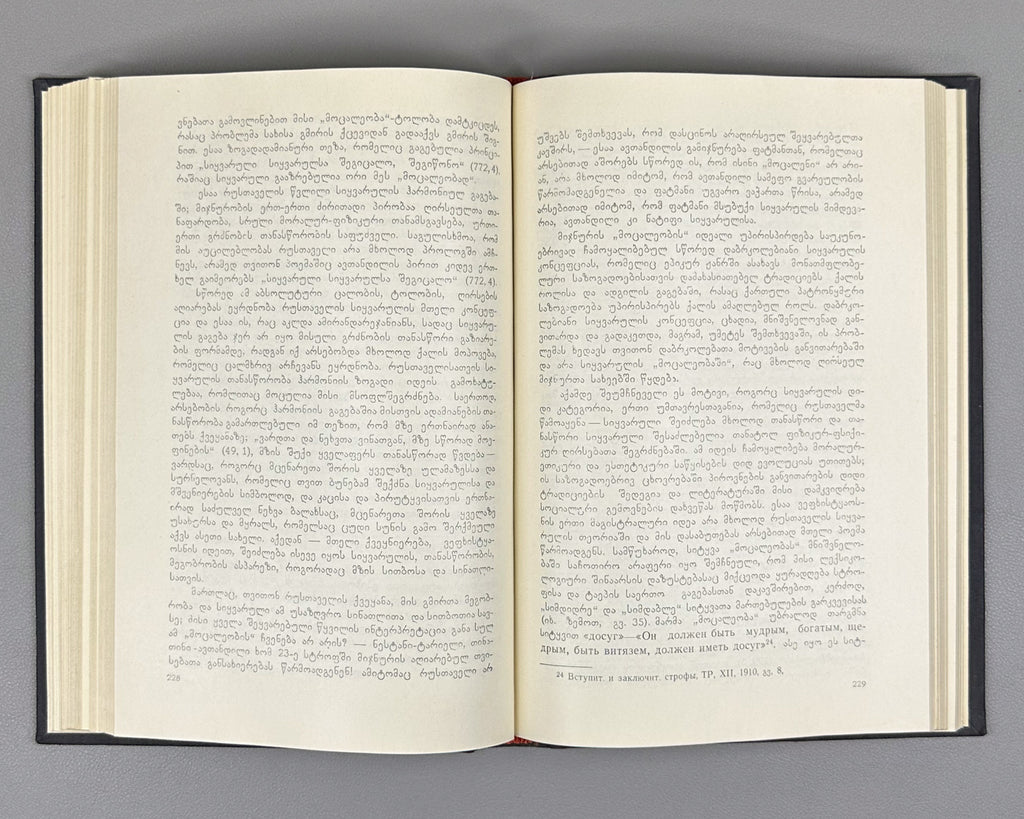 ვნებათა გამოვლინებით მისი „მოცალეობა“-ტოლობა დამტკიცდეს,
რასაც პრობლემა სახისა გმირის ქცევიდან გადააქვს გმირის შიგ-
ნით. ესაა ზოგადადამიანური თეზა, რომელიც გაგებულია პრინცი-
პით „სიყვარული სიყვარულსა შეგიცალო, შეგიწონო“ (772,4).
რაშიაც სიყვარული გააზრებულია ორი მეს „მოცალეობად“.
ესაა რუსთაველის წვლილი სიყვარულის ჰარმონიულ გაგება-
ში; მიჯნურობის ერთ-ერთი ძირითადი პირობაა ღირსეულთა თა-
ნაფარდობა, სრული მორალურ-ფიზიკური თანამსგავსება, ურთი-
ერთი გრძნობის თანასწორობის საფუძველი. საგულისხმოა, რომ
მის აუცილებლობას რუსთაველი არა მხოლოდ პროლოგში ამჩ-
ნევს, არამედ თვითონ პოემაშიც ავთანდილის პირით კიდევ ერთ-
ხელ გაიმეორებს „სიყვარული სიყვარულსა შეგიცალო“ (772,4).
სწორედ ამ აბსოლუტური ცალობის, ტოლობის, ღირსების
აღიარებას ეყრდნობა რუსთაველის სიყვარულის მთელი კონცეფ-
ცია და ესაა ის, რაც აკლდა ამირანდარეჯანიანს, სადაც სიყვარუ-
ლის გაგება ჯერ არ იყო მისული გრძნობის თანასწორი გაზიარე-
ბის ფორმამდე, რადგან იქ არსებობდა მხოლოდ ქალის მოპოვება,
რომელიც ცალმხრივ არჩევანს ეყრდნობა. რუსთაველისათვის სი-
ყვარულის თანასწორობა ჰარმონიის ზოგადი იდეის გამოხატუ-
ლებაა, რომლითაც მოცულია მისი მსოფლშეგრძნება. საერთოდ,
არსებობის როგორც ჰარმონიის გაგებაში მისთვის ადამიანების თა-
ნასწორობა გამართლებული იმ თეზით, რომ მზე ერთნაირად ანა-
თებს ქვეყანაზე; „ვარდთა და ნეხვთა ვინათგან, მზე სწორად მოე-
ფინების“ (49,1), მზის შუქი ყველაფერს თანასწორად წვდება—
ვარდსაც, როგორც მცენარეთა შორის ყველაზე ულამაზესსა და
სურნელოვანს, რომელიც თვით ბუნებამ შექმნა სიყვარულისა და
მშვენიერების სიმბოლოდ, და კაცისა და პირუტყვისათვის ერთნა-
ირად საძულველ ნეხვა ბალახსაც, მცენარეთა შორის ყველაზე
უსახურსა და მყრალს, რომელსაც ცუდი სუნის გამო შერქმეული
აქვს ასეთი სახელი. აქედან — მთელი ქვეყნიერება, ვეფხისტყა-
ოსნის იდეით, შეიძლება ისევე იყოს სიყვარულის, თანასწორობის,
მეგობრობის ასპარეზი, როგორადაც მზის სითბოსა და სინათლი-
სათვის.
მართლაც, თვითონ რუსთაველის ქვეყანა, მის გმირთა მეგობ-
რობა და სიყვარული ამ უსაზღვრო სინათლითა და სითბოთია სავ-
სე; მისი ყველა შეყვარებული წყვილის ინტერპრეტაცია განა სულ
ამ „მოცალეობის“ ჩვენება არ არის? — ნესტანი-ტარიელი, თინა-
თინი-ავთანდილი ხომ 23-ე სტროფში მიჯნურის აღიარებულ თვი-
სებათა განსახიერებას წარმოადგენენ! ამიტომაც რუსთაველი არ
228
უშვებს შემთხვევას, რომ დასცინოს არაღირსეულ შეყვარებულთა
კავშირს, — ესაა ავთანდილის გამიჯნურება ფატმანთან, რომელთაც
არსებითად აშორებს სწორედ ის, რომ ისინი „მოცალენი“ არ არი-
ან, არა მხოლოდ იმიტომ, რომ ავთანდილი სამეფო გვარეულობის
წარმომადგენელია და ფატმანი უგვარო ვაჭართა წრისა, არამედ
არსებითად იმიტომ, რომ ფატმანი მსუბუქი სიყვარულის მიმდევა-
რია, ავთანდილი კი ნატიფი სიყვარულისა.
მიჯნურის „მოცალეობის“ იდეალი უპირისპირდება საუკუნო-
ებრივად ჩამოყალიბებულ სწორედ დაბრკოლებიანი სიყვარულის
კონცეფციას, რომელიც ეპიკურ ჟანრში ასახავს მონათმფლობე-
ლური საზოგადოებისათვის დამახასიათებელ ტრადიციებს ქალის
როლისა და ადგილის გაგებაში, რასაც ქართული პატრონყმური
საზოგადოება უპირისპირებს ქალის ამაღლებულ როლს. დაბრკო-
ლებიანი სიყვარულის კონცეფცია, ცხადია, მნიშვნელოვნად გან-
ვითარდა და გადაკეთდა, მაგრამ, უმეტეს შემთხვევაში, ის პრობ-
ლემას ხედავს თვითონ დაბრკოლებათა მოტივების განვითარებაში
და არა სიყვარულის „მოცალეობაში“, რაც მხოლოდ ღირსეულ
მიჯნურთა სახეებში წყდება.
აქამდე შეუმჩნეველი ეს მოტივი, როგორც სიყვარულის დი-
დი კატეგორია, ერთი უმთავრესთაგანია, რომელიც რუსთაველმა
წამოაყენა — სიყვარული შეიძლება მხოლოდ თანასწორი და თა-
ნასწორი სიყვარული შესაძლებელია თანატოლ ფიზიკურ-ფსიქი-
კურ ღირსებათა შეგრძნებაში. ამ იდეის ჩამოყალიბება მორალურ-
ეთიკური და ესთეტიკური საწყისების დიდ ევოლუციას უთითებს;
ის საზოგადოებრივ ცხოვრებაში პიროვნების განვითარების დიდი
ტრადიციების შედეგია და ლიტერატურაში მისი დამკვიდრება
სოციალური გემოვნების დახვეწას მოწმობს. ესაა ვეფხისტყაოს-
ნის ერთი მაგისტრალური იდეა არა მხოლოდ რუსთაველის სიყვა-
რულის თეორიაში და მის დასაბუთებას არსებითად მთელი პოემა
წარმოადგენს. სამწუხაროდ, სიტყვა „მოცალეობას“ მნიშვნელო-
ბაში საჩოთირო არაფერი იყო შემჩნეული, რომ მისი ლექსიკო-
ლოგიური შინაარსის დაზუსტებასაც მიქცეოდა ყურადღება სტრო-
ფისა და ტაეპის საერთო გაგებასთან დაკავშირებით, კერძოდ,
„სიმდიდრე“ და „სიმდაბლე“ სიტყვათა მართებულების გარკვევისას
(იხ. ზემოთ, გვ. 35). მარმა „მოცალეობა“ უბრალოდ თარგმნა
სიტყვით «досуг»—«Он должен быть мудрым, богатым, ще-
дрым, быть витязем, должен иметь досуг»²⁴. ასე იყო ეს სიტ-
24 Вступит. и заключит. строфы, ТР, XII, 1910, გვ. 8.
229